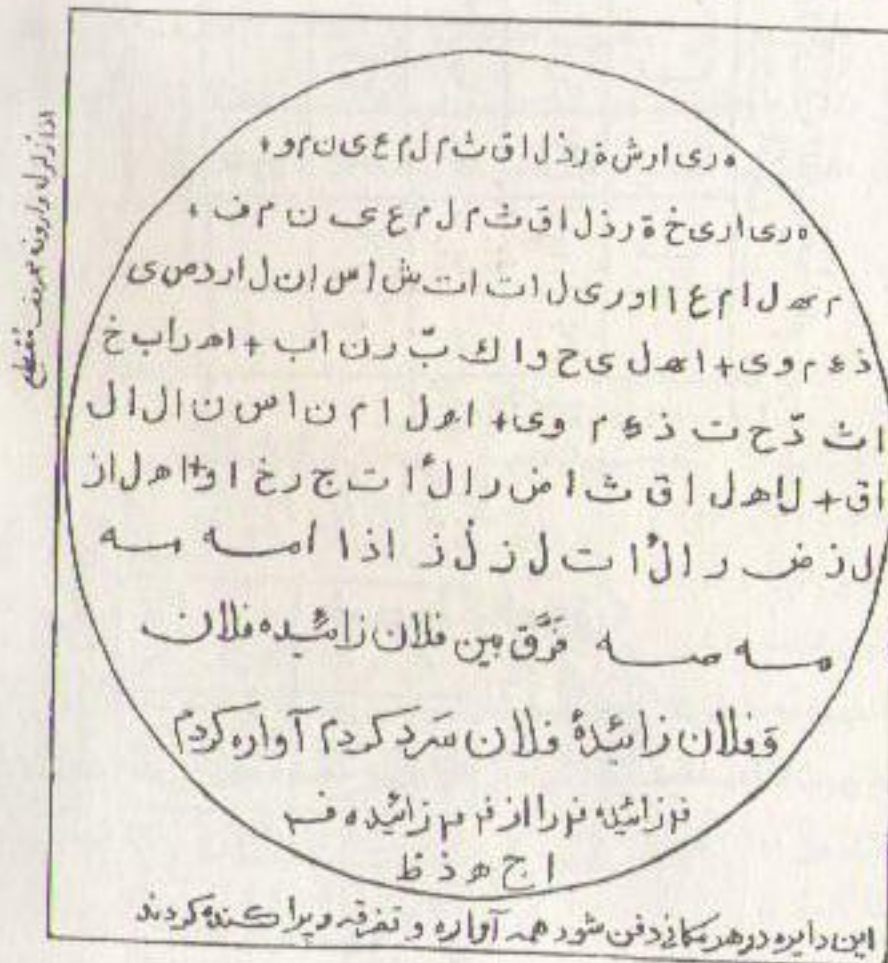 اذا زلزل وارونه بحروف مقطع
ه ر ی ا ر ش ة ر ذ ل ا ق ث م ل م ع ی ن م و ،
ه ر ی ا ر ی خ ة ر ذ ل ا ق ث م ل م ع ی ن م ف ،
م ه ل ا م ع ا ا و ر ی ل ا ت ا ت ش ا س ا ن ل ا ر د ص ی
ذ ء م و ی + ا ه ل ی ح و ا ك بّ ر ن ا ب + ا ه ر ا ب خ
ا ث دّ ح ت ذ ء م و ی + ا ه ل ا م ن ا س ن ا ل ا ل
ا ق + ل ا ه ل ا ق ث ا ض ر ا ل أ ا ت ج ر خ ا و + ا ه ل ا ز
ل ز ض ر ا ل أ ا ت ل ز ل ز ا ذ ا
فَرَّق بین فلان زائیده فلان
وَفلان زائیدۀ فلان سَرد کردم آواره کردم
فم زائیده فم را از فم زائیده فم
ا ج ه ذ ظ
این دایره در هر مکانی دفن شود همه آواره و تفرقه و پراکنده گردند